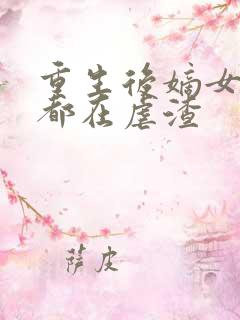 重生後嫡女
都在虐渣
薩皮